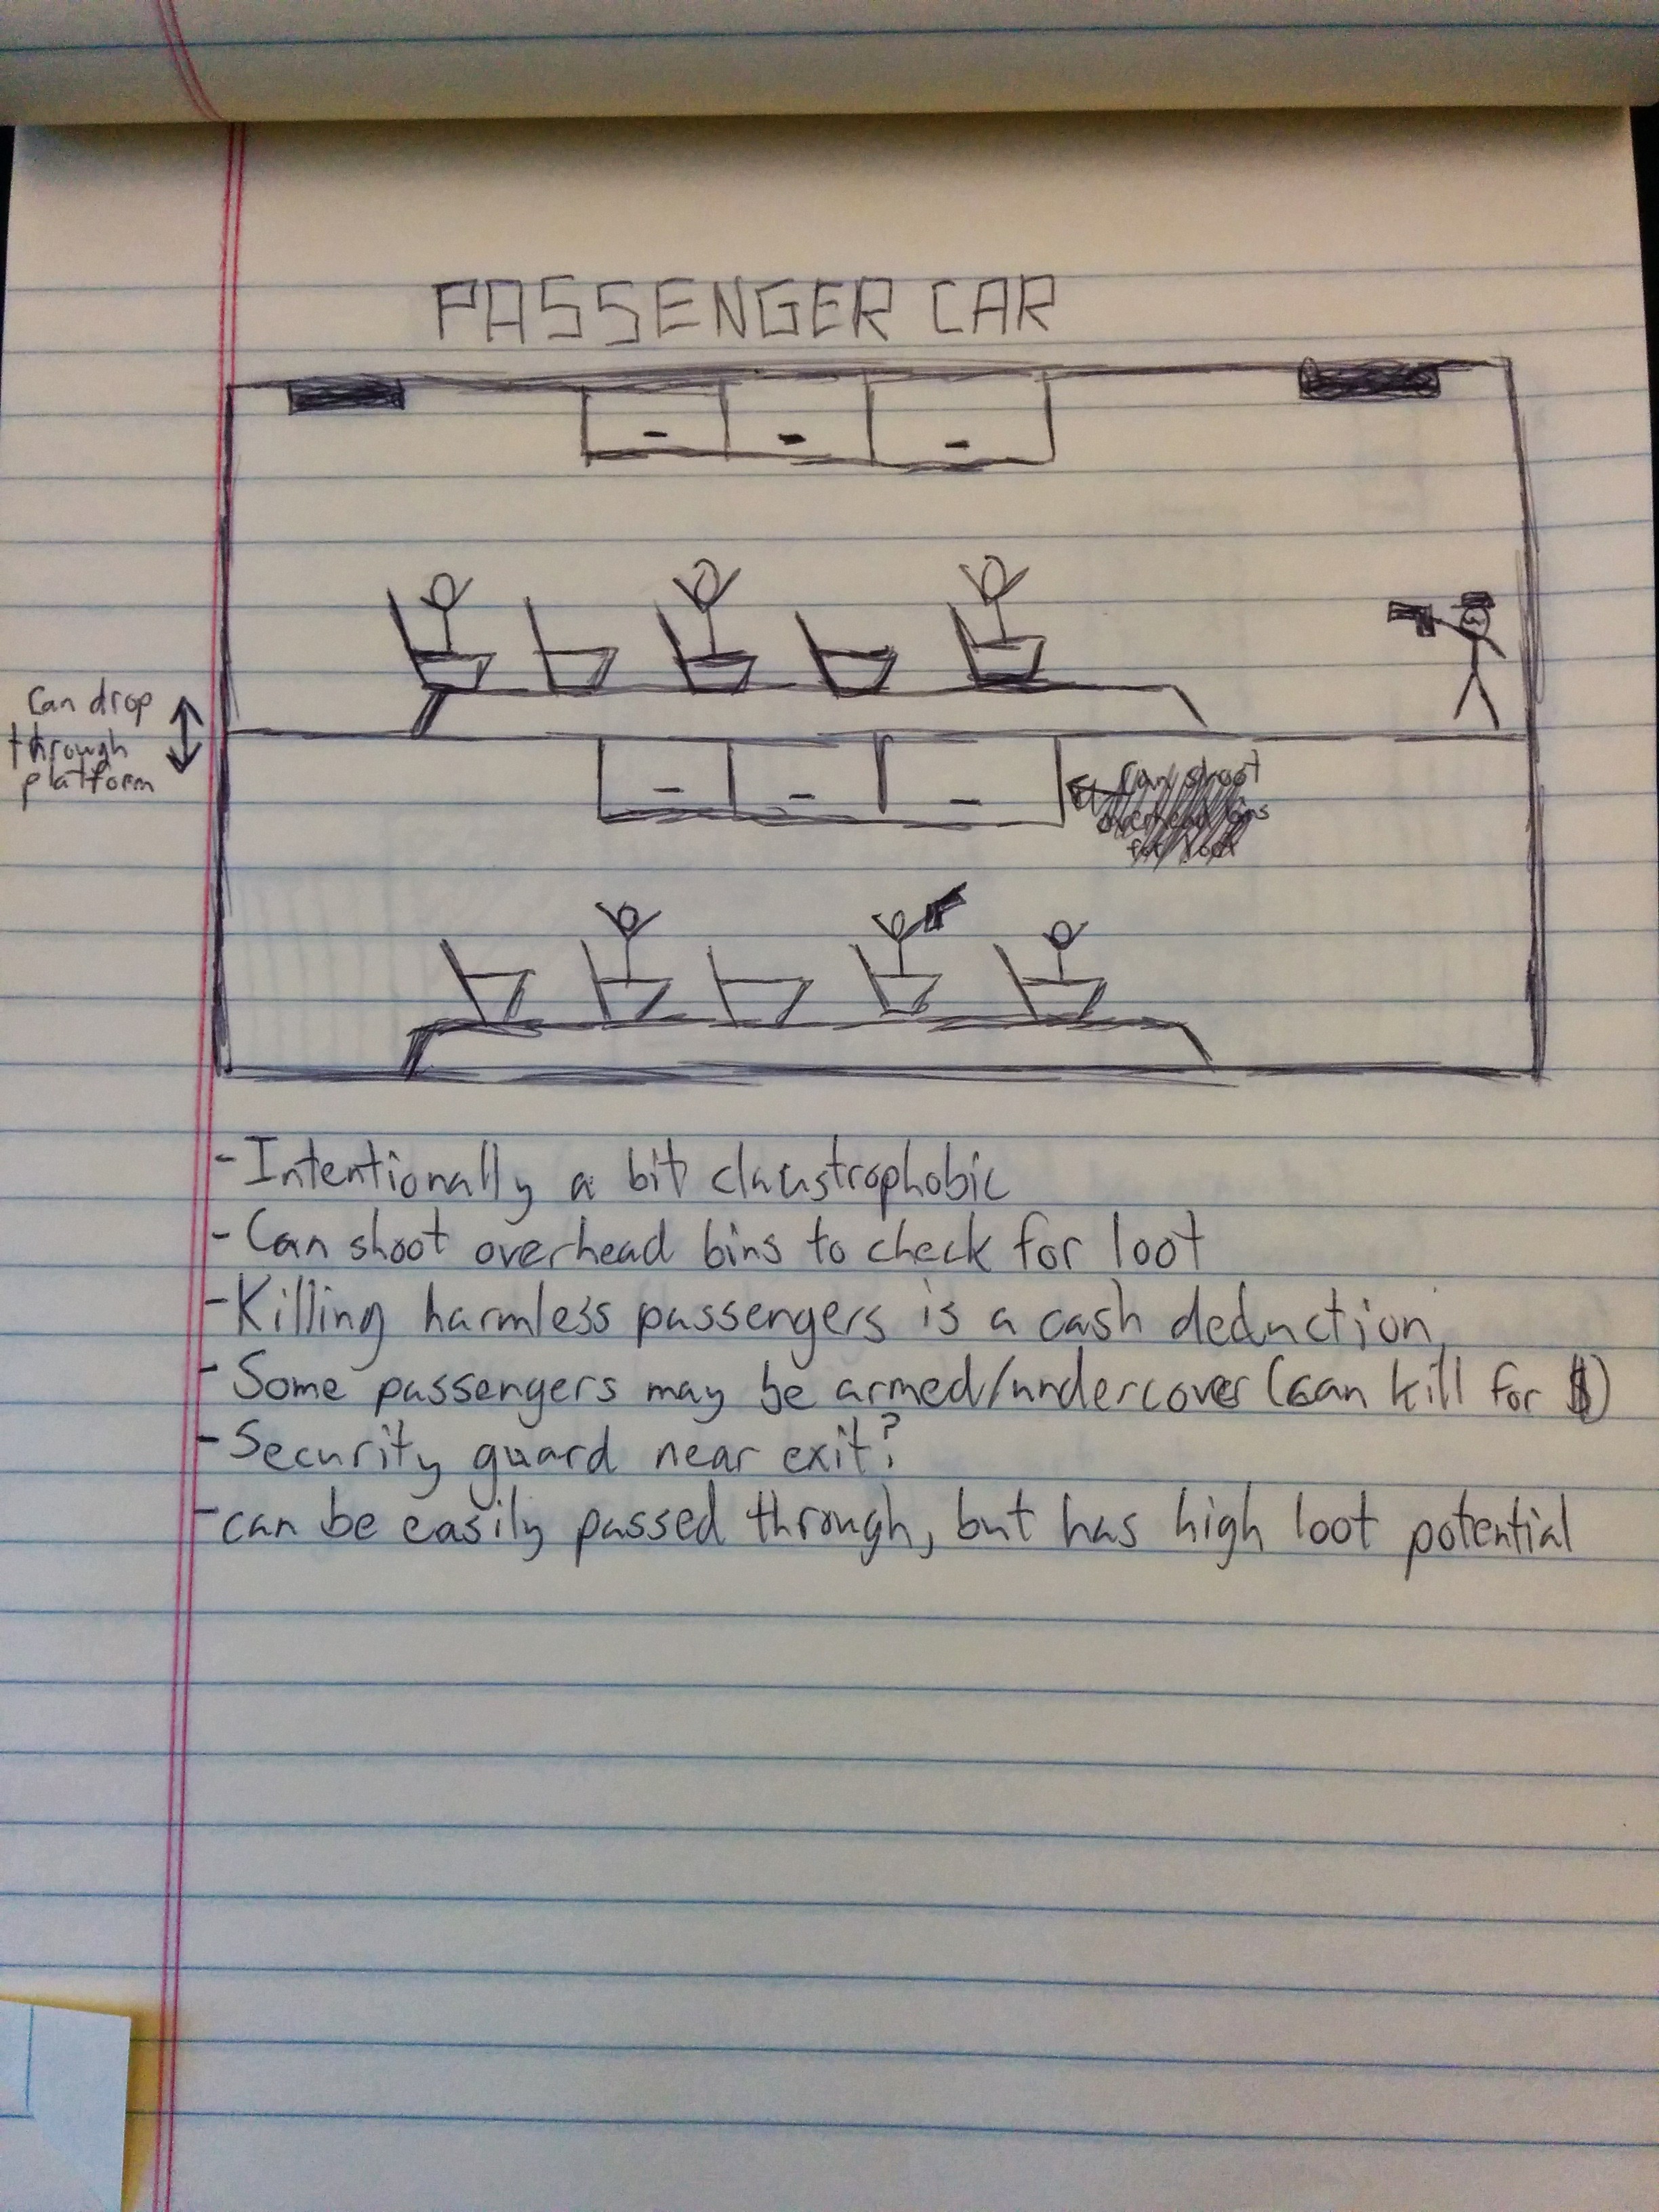 PASSENGER CAR
Can drop
through
platform
Can shoot
overhead bins
for loot
- Intentionally a bit claustrophobic
- Can shoot overhead bins to check for loot
- Killing harmless passengers is a cash deduction
- Some passengers may be armed/undercover (can kill for $)
- Security guard near exit?
- can be easily passed through, but has high loot potential